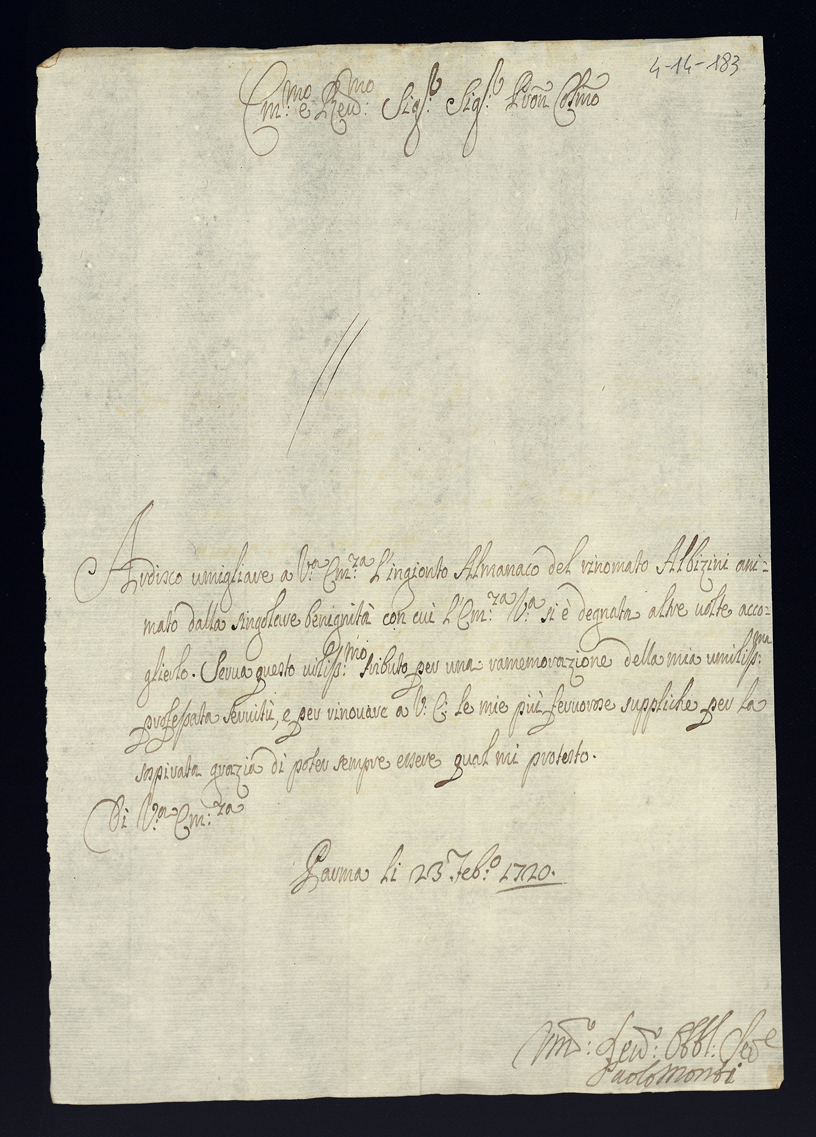 4-14-183
Em:mo e Rev:mo Sig:r Sig:r Pron Colmo
Ardisco umigliare a V:a Em:za l'ingionto Almanaco del rinomato Albizini ani=
mato dalla singolare benignità con cui l'Em:za V:a si è degnata altre volte acco=
glierlo. Serva questo umiliss:mo tributo per una ramemorazione della mia umiliss:ma
professata servitù, e per rinovare a V: E: le mie più fervorose suppliche per la
sospirata grazia di poter sempre essere qual mi protesto.
Di V:a Em:za
Parma li 23 Feb:o 1720.
Um:o Dev:o Obbl: Ser:e
Paolo Monti